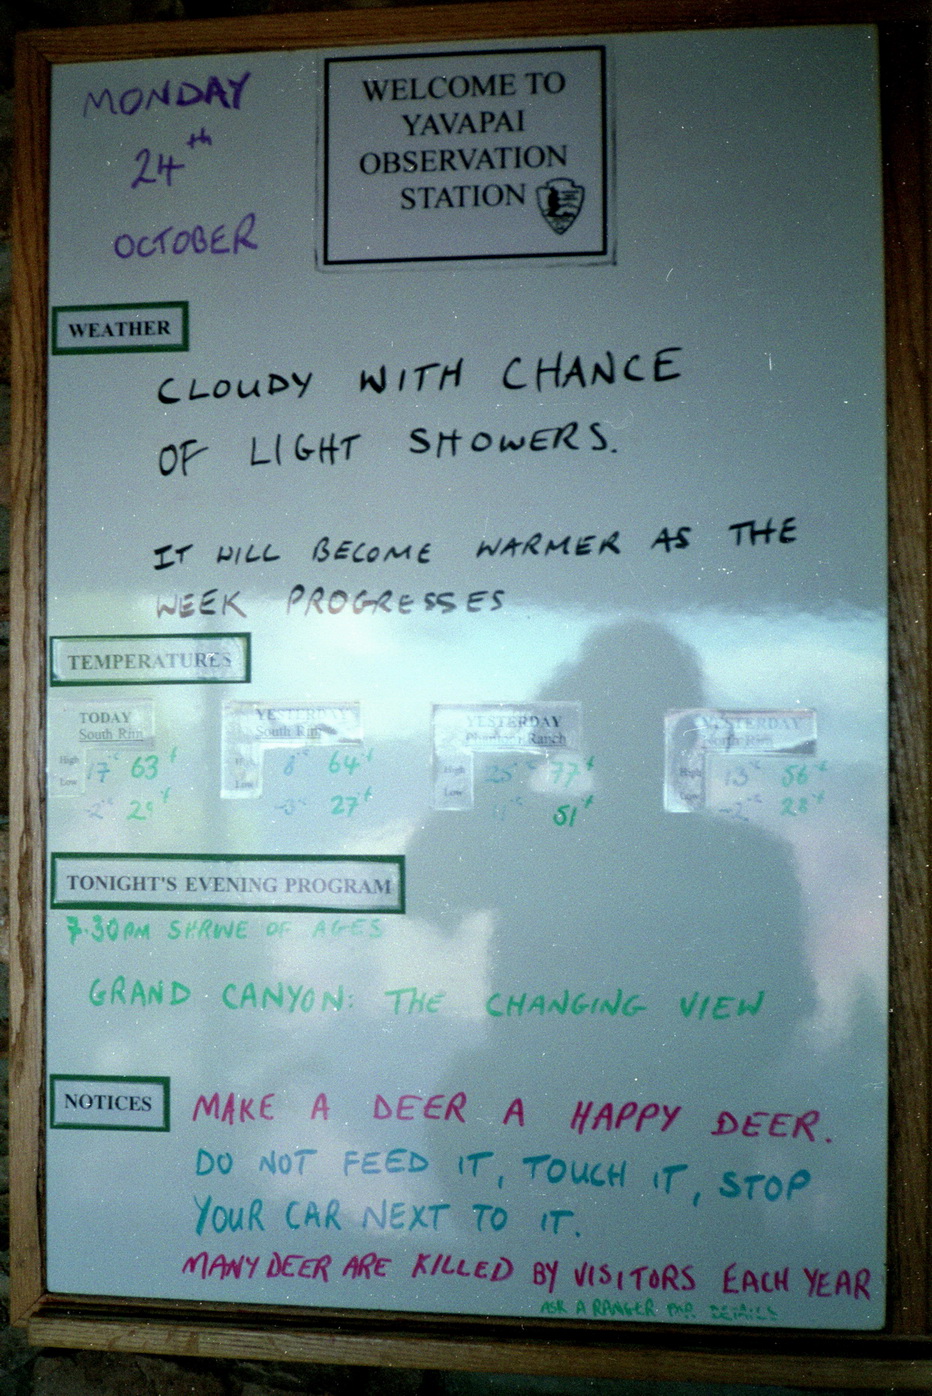 MONDAY
24th
OCTOBER
WELCOME TO
YAVAPAI
OBSERVATION
STATION
WEATHER
CLOUDY WITH CHANCE
OF LIGHT SHOWERS.
IT WILL BECOME WARMER AS THE
WEEK PROGRESSES
TEMPERATURES
TODAY
South Rim
High 17°C 63°f
Low -2°C
YESTERDAY
South Rim
64°f
27°f
YESTERDAY
Phantom Ranch
High 25°C 77°f
Low 51°f
YESTERDAY
North Rim
High 13°C 56°f
-2°C 28°f
TONIGHT'S EVENING PROGRAM
7.30PM SHRINE OF AGES
GRAND CANYON: THE CHANGING VIEW
NOTICES
MAKE A DEER A HAPPY DEER.
DO NOT FEED IT, TOUCH IT, STOP
YOUR CAR NEXT TO IT.
MANY DEER ARE KILLED BY VISITORS EACH YEAR
ASK A RANGER FOR DETAILS